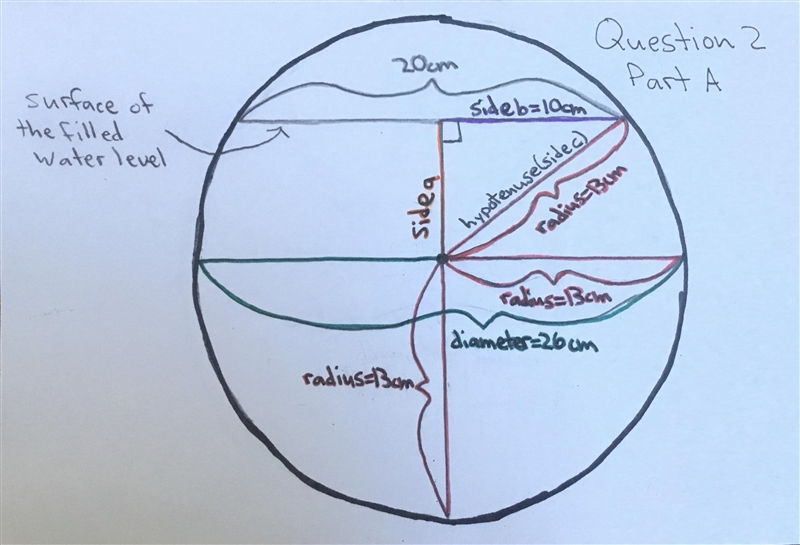 Question 2
Part A
20cm
surface of
the filled
water level
side b=10cm
side a
hypotenuse(side c)
radius=13cm
radius=13cm
diameter=26cm
radius=13cm